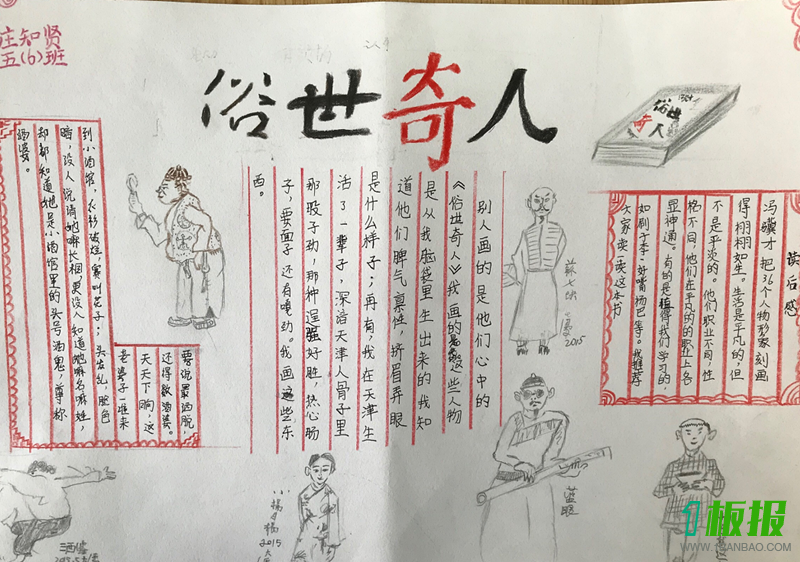 庄知贤
五(6)班
俗世奇人
俗世
奇人
读后感
冯骥才把36个人物形象刻画
得栩栩如生。生活是平凡的,但
不是平淡的。他们职业不同,性
格不同,他们在平凡的的职业上各
显神通。有的是值得我们学习的,
如刷子李,好嘴杨巴等。我推荐
大家读一读这本书
别人画的是他们心中的
《俗世奇人》我画的这些人物
是从我脑袋里生出来的我知
道他们脾气禀性,挤眉弄眼
是什么样子;再有,我在天津生
活了一辈子,深浩天津人骨子里
那股子劲,那种逞强好胜,热心肠
子,要面子还有嘎劲。我画这些东
西。
要说最洒脱,
还得数酒婆。
天天下晌,这
老婆子一准来
到小酒馆,衣衫破烂,赛叫花子;头发乱,脸色
暗,没人说清她嘛长相,更没人知道她嘛名嘛姓,
却都知道她是小酒馆里的头号酒鬼,尊称
酒婆。
苏七块
2015
蓝眼
小杨月楼
2015
酒婆
板报
WWW.1BANBAO.COM